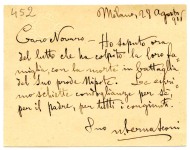 452
Milano, 29 Agosto
Caro Novaro - Ho saputo ora
del lutto che ha colpito la loro fa
miglia con la morte in battaglia
del Suo prode Nipote. Le espri
mo schiette condoglianze per sé,
per il padre, per tutti i congiunti.
Suo